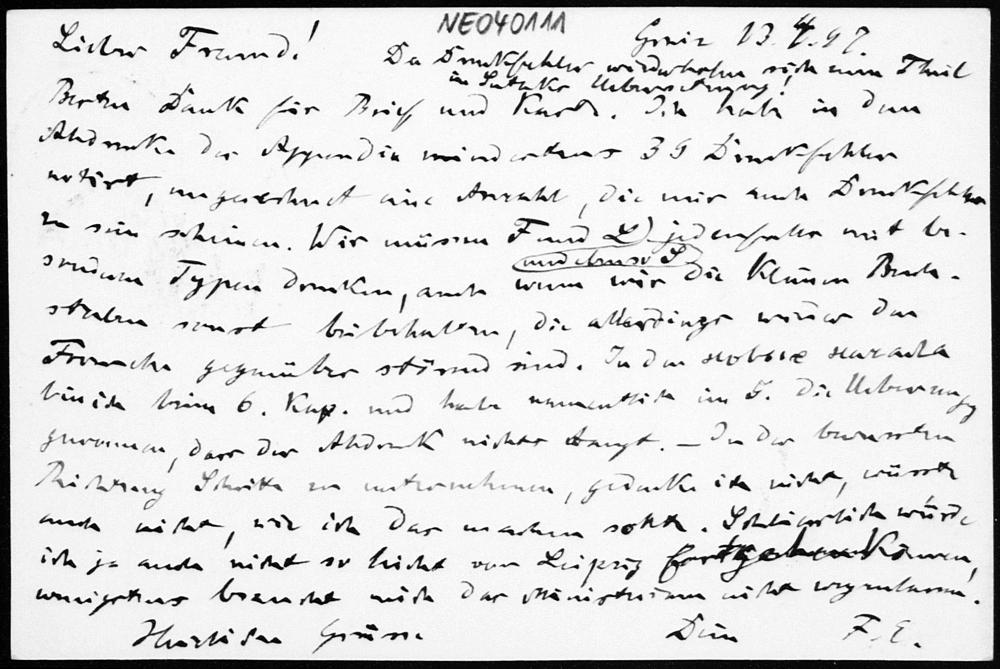 NE040111
Greiz 13.4.97.
Lieber Freund!
Die Druckfehler wiederholen sich zum Theil
in Uebersetzung!
Besten Dank für Brief und Karte. Ich habe in dem
Abdrucke der Appendix mindestens 39 Druckfehler
notirt, ungerechnet eine Anzahl, die mir auch Druckfehler
zu sein scheinen. Wir müssen F und L jedenfalls mit be-
und
sonderen Typen drucken, auch wenn wir die kleinen Buch-
staben sonst beibehalten, die allerdings wieder den
gegenüber störend sind. In der
bin ich beim 6. Kap. und habe namentlich im 5. die Ueberzeugg
gewonnen, dass der Abdruck nichts taugt. — In der bewussten
Richtung Schritte zu unternehmen, gedenke ich nicht, wüsste
auch nicht, wie ich das machen sollte. Schliesslich würde
ich ja auch nicht so leicht von Leipzig fortgehen können,
wenigstens braucht mich das Ministerium nicht wegzulassen.
Herzliche Grüsse
Dein F. E.